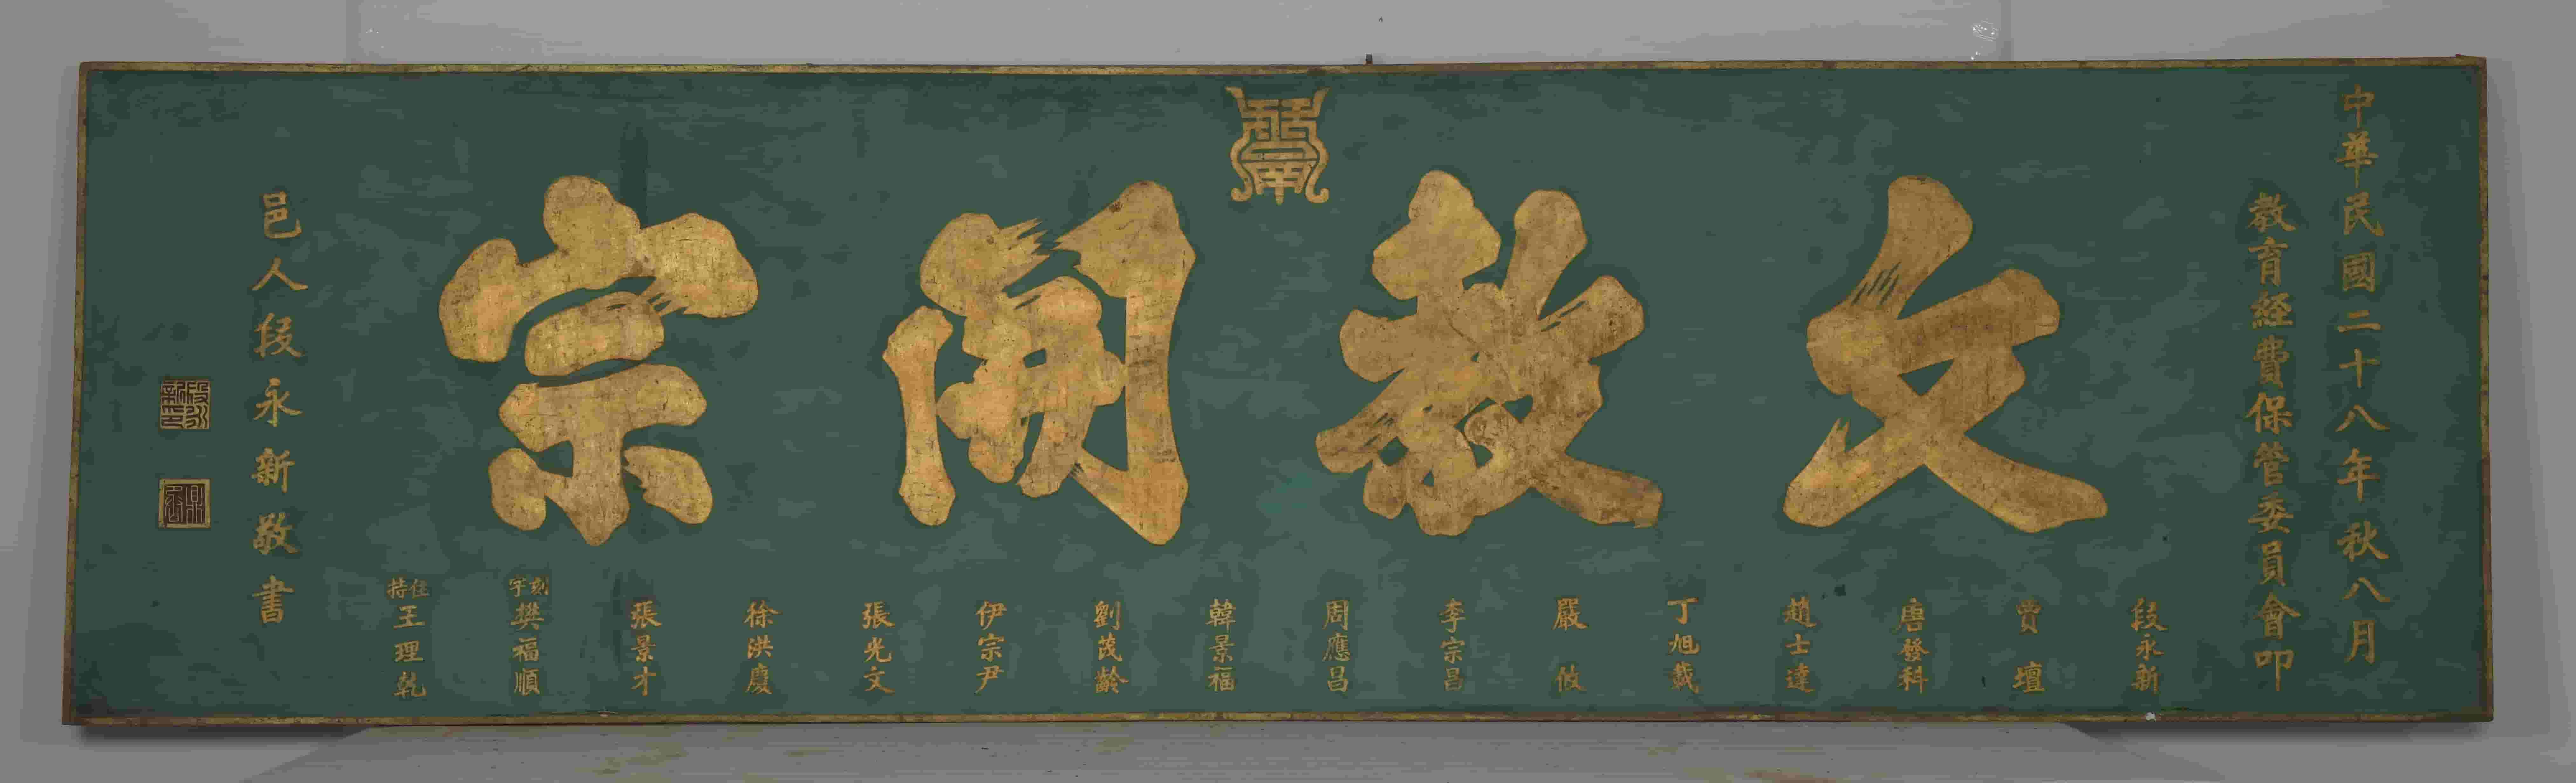 中華民國二十八年秋八月
教育経費保管委員會叩
文教開宗
段永新
賈壇
唐發科
趙士達
丁旭載
嚴攸
李宗昌
周應昌
韓景福
劉茂齡
伊宗尹
張光文
徐洪慶
張景才
刻字樊福順
住持王理乾
邑人段永新敬書
段永新印